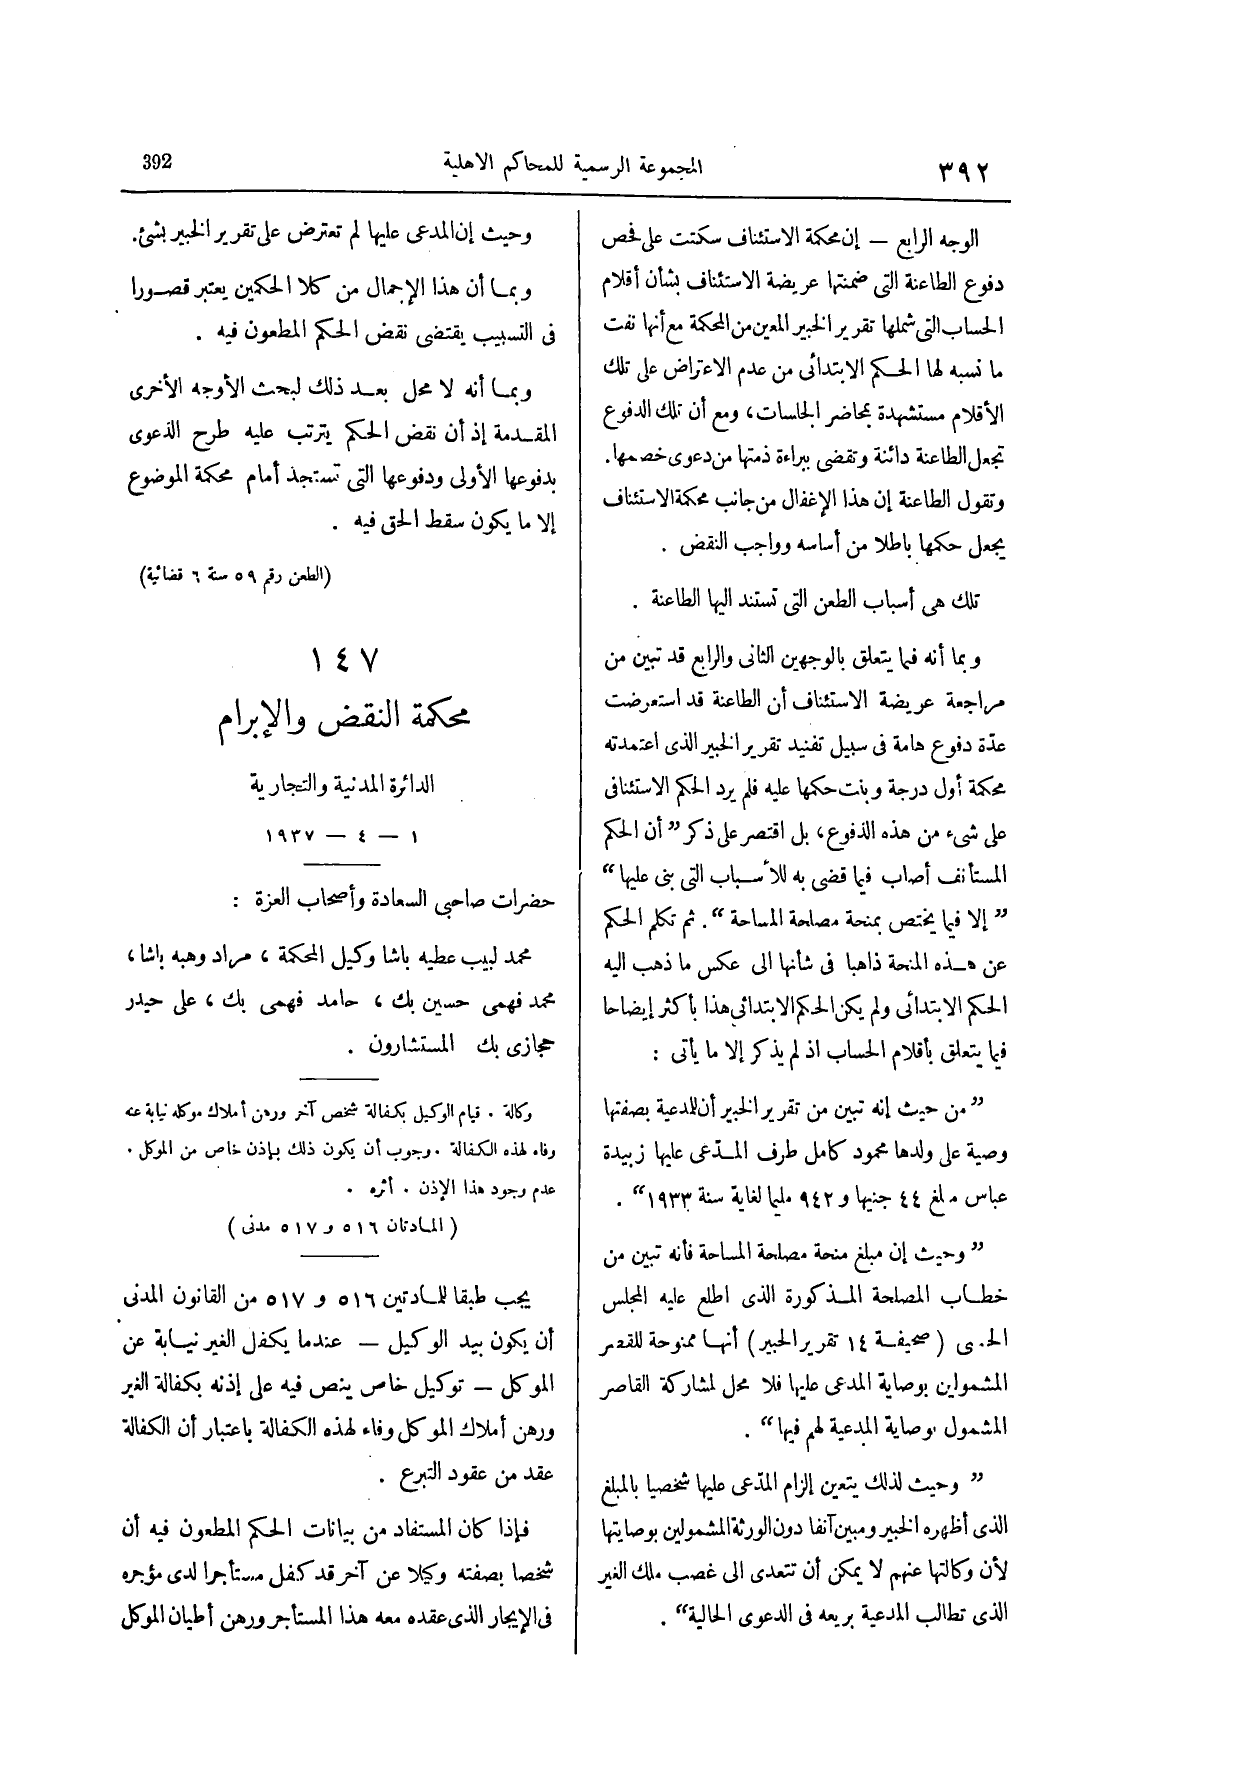 ٣٩٢
المجموعة الرسمية للمحاكم الاهلية
392
الوجه الرابع — إن محكمة الاستئناف سكتت على فحص
دفوع الطاعنة التى ضمنتها عريضة الاستئناف بشأن أقلام
الحساب التى شملها تقرير الخبير المعين من المحكمة مع أنها نفت
ما نسبه لها الحكم الابتدائى من عدم الاعتراض على تلك
الأقلام مستشهدة بمحاضر الجلسات، ومع أن تلك الدفوع
تجعل الطاعنة دائنة وتقضى ببراءة ذمتها من دعوى خصمها.
وتقول الطاعنة إن هذا الإغفال من جانب محكمة الاستئناف
يجعل حكمها باطلا من أساسه وواجب النقض .
تلك هى أسباب الطعن التى تستند اليها الطاعنة .
وبما أنه فيما يتعلق بالوجهين الثانى والرابع قد تبين من
مراجعة عريضة الاستئناف أن الطاعنة قد استعرضت
عدّة دفوع هامة فى سبيل تفنيد تقرير الخبير الذى اعتمدته
محكمة أول درجة وبنت حكمها عليه فلم يرد الحكم الاستئنافى
على شىء من هذه الدفوع، بل اقتصر على ذكر ”أن الحكم
المستأنف أصاب فيما قضى به للأسباب التى بنى عليها“
”إلا فيما يختص بمنحة مصلحة المساحة“. ثم تكلم الحكم
عن هذه المنحة ذاهبا فى شأنها الى عكس ما ذهب اليه
الحكم الابتدائى ولم يكن الحكم الابتدائى هذا بأكثر إيضاحا
فيما يتعلق بأقلام الحساب اذ لم يذكر إلا ما يأتى :
”من حيث إنه تبين من تقرير الخبير أن للمدعية بصفتها
وصية على ولدها محمود كامل طرف المدّعى عليها زبيدة
عباس مبلغ ٤٤ جنيها و ٩٤٢ مليما لغاية سنة ١٩٣٣“ .
”وحيث إن مبلغ منحة مصلحة المساحة فأنه تبين من
خطاب المصلحة المذكورة الذى اطلع عليه المجلس
الحسبى (صحيفة ١٤ تقرير الخبير) أنها ممنوحة للقصر
المشمولين بوصاية المدعى عليها فلا محل لمشاركة القاصر
المشمول بوصاية المدعية لهم فيها“ .
”وحيث لذلك يتعين إلزام المدّعى عليها شخصيا بالمبلغ
الذى أظهره الخبير ومبين آنفا دون الورثة المشمولين بوصايتها
لأن وكالتها عنهم لا يمكن أن تتعدى الى غصب ملك الغير
الذى تطالب المدعية بريعه فى الدعوى الحالية“ .
وحيث إن المدعى عليها لم تعترض على تقرير الخبير بشئ.
وبما أن هذا الإجمال من كلا الحكمين يعتبر قصورا
فى التسبيب يقتضى نقض الحكم المطعون فيه .
وبما أنه لا محل بعد ذلك لبحث الأوجه الأخرى
المقدمة إذ أن نقض الحكم يترتب عليه طرح الدعوى
بدفوعها الأولى ودفوعها التى تستجد أمام محكمة الموضوع
إلا ما يكون سقط الحق فيه .
(الطعن رقم ٥٩ سنة ٦ قضائية)
١٤٧
محكمة النقض والإبرام
الدائرة المدنية والتجارية
١ — ٤ — ١٩٣٧
حضرات صاحبى السعادة وأصحاب العزة :
محمد لبيب عطيه باشا وكيل المحكمة ، مراد وهبه باشا ،
محمد فهمى حسين بك ، حامد فهمى بك ، على حيدر
حجازى بك المستشارون .
وكالة . قيام الوكيل بكفالة شخص آخر ورهن أملاك موكله نيابة عنه
وفاء لهذه الكفالة . وجوب أن يكون ذلك بإذن خاص من الموكل .
عدم وجود هذا الإذن . أثره .
(المادتان ٥١٦ و ٥١٧ مدنى)
يجب طبقا للمادتين ٥١٦ و ٥١٧ من القانون المدنى
أن يكون بيد الوكيل — عندما يكفل الغير نيابة عن
الموكل — توكيل خاص ينص فيه على إذنه بكفالة الغير
ورهن أملاك الموكل وفاء لهذه الكفالة باعتبار أن الكفالة
عقد من عقود التبرع .
فإذا كان المستفاد من بيانات الحكم المطعون فيه أن
شخصا بصفته وكيلا عن آخر قد كفل مستأجرا لدى مؤجره
فى الإيجار الذى عقده معه هذا المستأجر ورهن أطيان الموكل